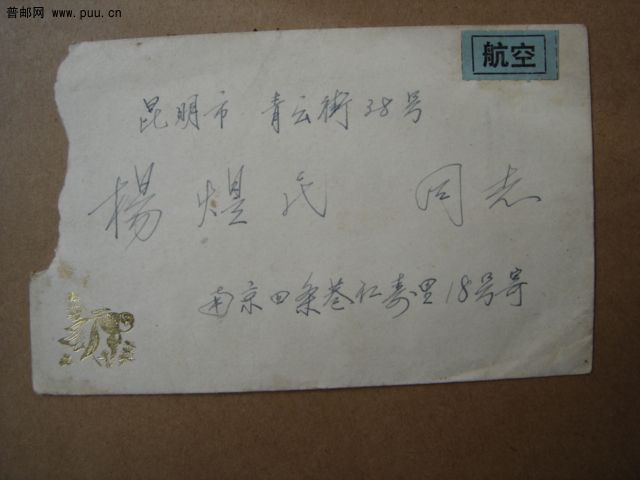 普邮网 www.puu.cn
航空
昆明市 青云街38号
楊煜民 同志
南京四条巷仁寿里18号寄